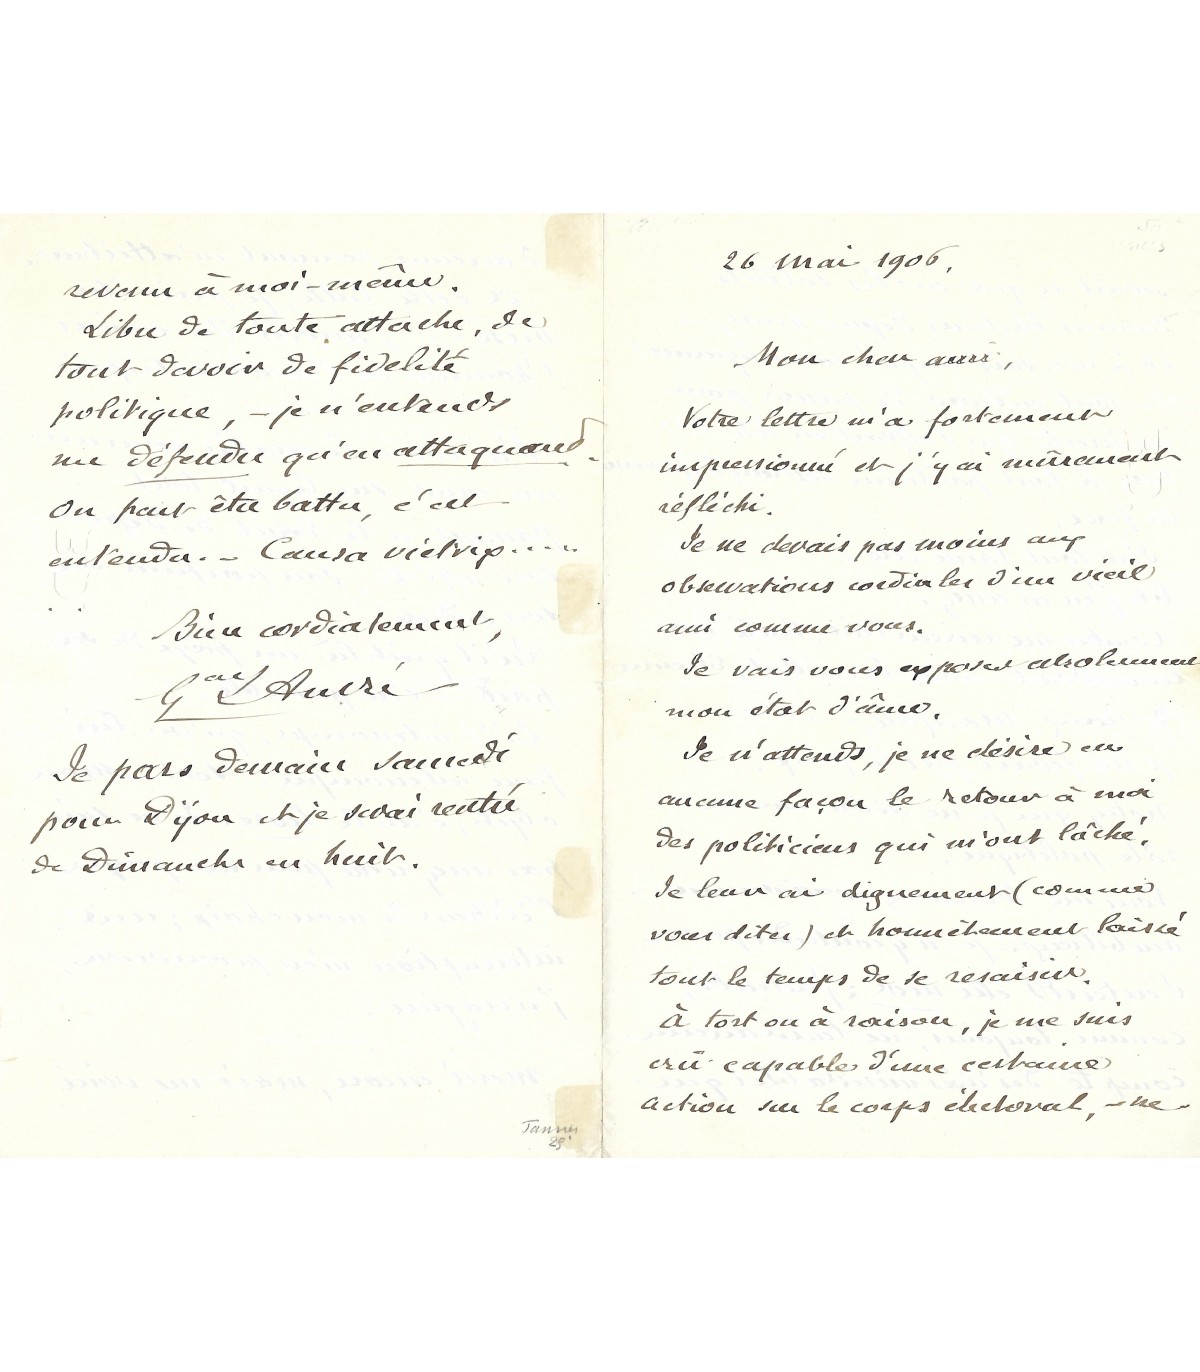 26 mai 1906.
Mon cher ami,
Votre lettre m'a fortement
impressionné et j'y ai mûrement
réfléchi.
Je ne devais pas moins aux
observations cordiales d'un vieil
ami comme vous.
Je vais vous exposer absolument
mon état d'âme.
Je n'attends, je ne désire en
aucune façon le retour à moi
des politiciens qui m'ont lâché.
Je leur ai dignement (comme
vous dites) et honnêtement laissé
tout le temps de se resaisir.
À tort ou à raison, je me suis
crû capable d'une certaine
action sur le corps électoral, – ne
revenu à moi-même.
Libre de toute attache, de
tout devoir de fidelité
politique, – je n'entends
me défendre qu'en attaquant.
On peut être battu, c'est
entendu. – Causa victrix.....
..
Bien cordialement,
Gal L André
Je pars demain samedi
pour Dijon et je serai rentré
de Dimanche en huit.